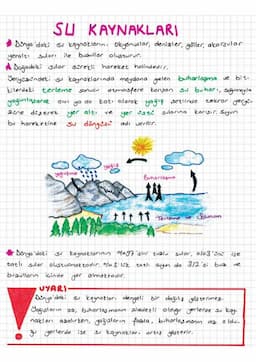 SU KAYNAKLARI
Dünya'daki su kaynaklarını; okyanuslar, denizler, göller, akarsular
yeraltı suları ile buzullar oluşturur.
Doğadaki sular sürekli hareket halindedir.
Yeryüzündeki su kaynaklarında meydana gelen buharlaşma ve bit-
kilerdeki terleme sonucu atmosfere karışan su buharı, soğumayla
yoğunlaşarak sıvı ya da katı olarak yağış şeklinde tekrar yeryü-
züne düşerek yer altı ve yer üstü sularına karışır. Suyun
bu hareketine su döngüsü adı verilir.
yoğuşma
yağış
Buharlaşma
Terleme ve
Dünya'daki su kaynaklarının %97'sini tuzlu sular, %3'ünü ise
tatlı sular oluşturmaktadır. tatlı suyun da 2/3'ü buz ve
buzulların içinde yer almaktadır.
UYARI
Dünya'daki su kaynakları dengeli bir dağılış göstermez.
Yağışların az, buharlaşmanın şiddetli olduğu yerlerde su kay-
nakları azalırken, yağışların fazla, buharlaşmanın az oldu-
ğu yerlerde ise su kaynakları artış gösterir.